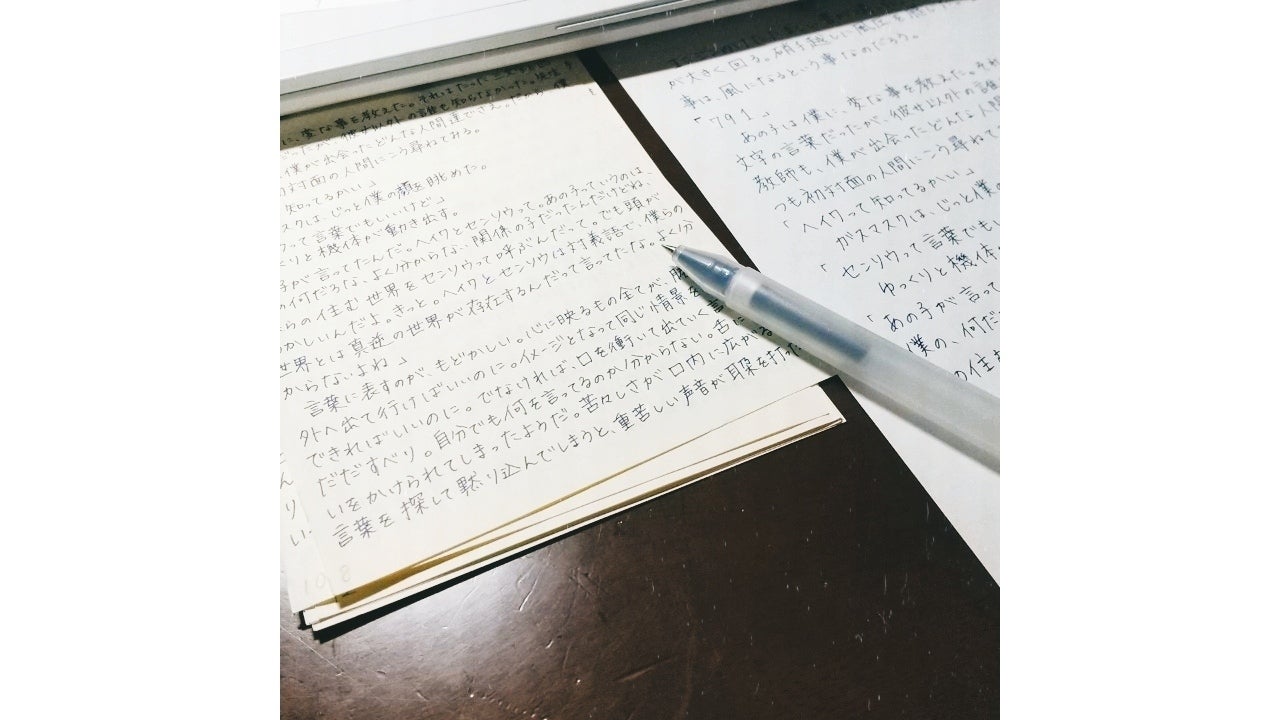 に、変な事を教えた。それはたった三文字の
だったが、彼女以外の言葉も知らなかった。先生も
僕が出会ったどんな人間達でさえ。だから、僕
初対面の人間にこう尋ねてみる。
知ってるかい」
スクは、じっと僕の顔を眺めた。
って言葉でもいいけど」
くりと機体が動き出す。
子が言ってたんだ。ヘイワとセンソウって。あの子っていうのは、
の何だろな、よく分からない関係の子だったんだけどね、
らの住む世界をセンソウって呼ぶんだって。でも頭が
かしいんだよ。きっと。ヘイワとセンソウは対義語で、僕らの
世界とは真逆の世界が存在するんだって言ってたな。よく分
からないよね」
言葉に表すのが、もどかしい。心に映るもの全てが、
外へ出て行けばいいのに。イメージとなって同じ情景を
できればいいのに。でなければ、口を衝いて出ていく言
だだすべり。自分でも何を言ってるのか分からない。舌に
いをかけられてしまったようだ。苦々しさが口内に広がる
言葉を探して黙り込んでしまうと、重苦しい声音が耳朶を打った
ん
り
い
108
が大きく回る。硝子越しに風圧を
事は、風になるという事なのだろう。
「791」
あの子は僕に、変な事を教えた。それ
文字の言葉だったが、彼女以外の言葉
教師も、僕が出会ったどんな人間
つも初対面の人間にこう尋ねて
「ヘイワって知ってるかい」
ガスマスクは、じっと僕の
「センソウって言葉でもい
ゆっくりと機体
「あの子が言って
僕の、何だ
の住